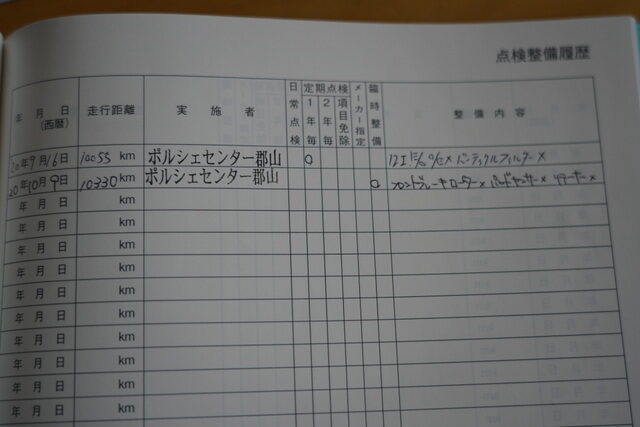 点検整備履歴
年 月 日 (西暦) 走行距離 実施者 日常点検 定期点検 1年毎 2年毎 項目免除 メーカー指定 臨時整備 整備内容
20年9月16日 10055 km ポルシェセンター郡山 ○ パーティクルフィルター×
20年10月9日 10330 km ポルシェセンター郡山 ○ フロントブレーキローター× パッドセンサー×
年 月 日 km
年 月 日 km
年 月 日 km
年 月 日 km
年 月 日 km
年 月 日 km
年 月 日 km
年 月 日 km
年 月 日 km
年 月 日 km